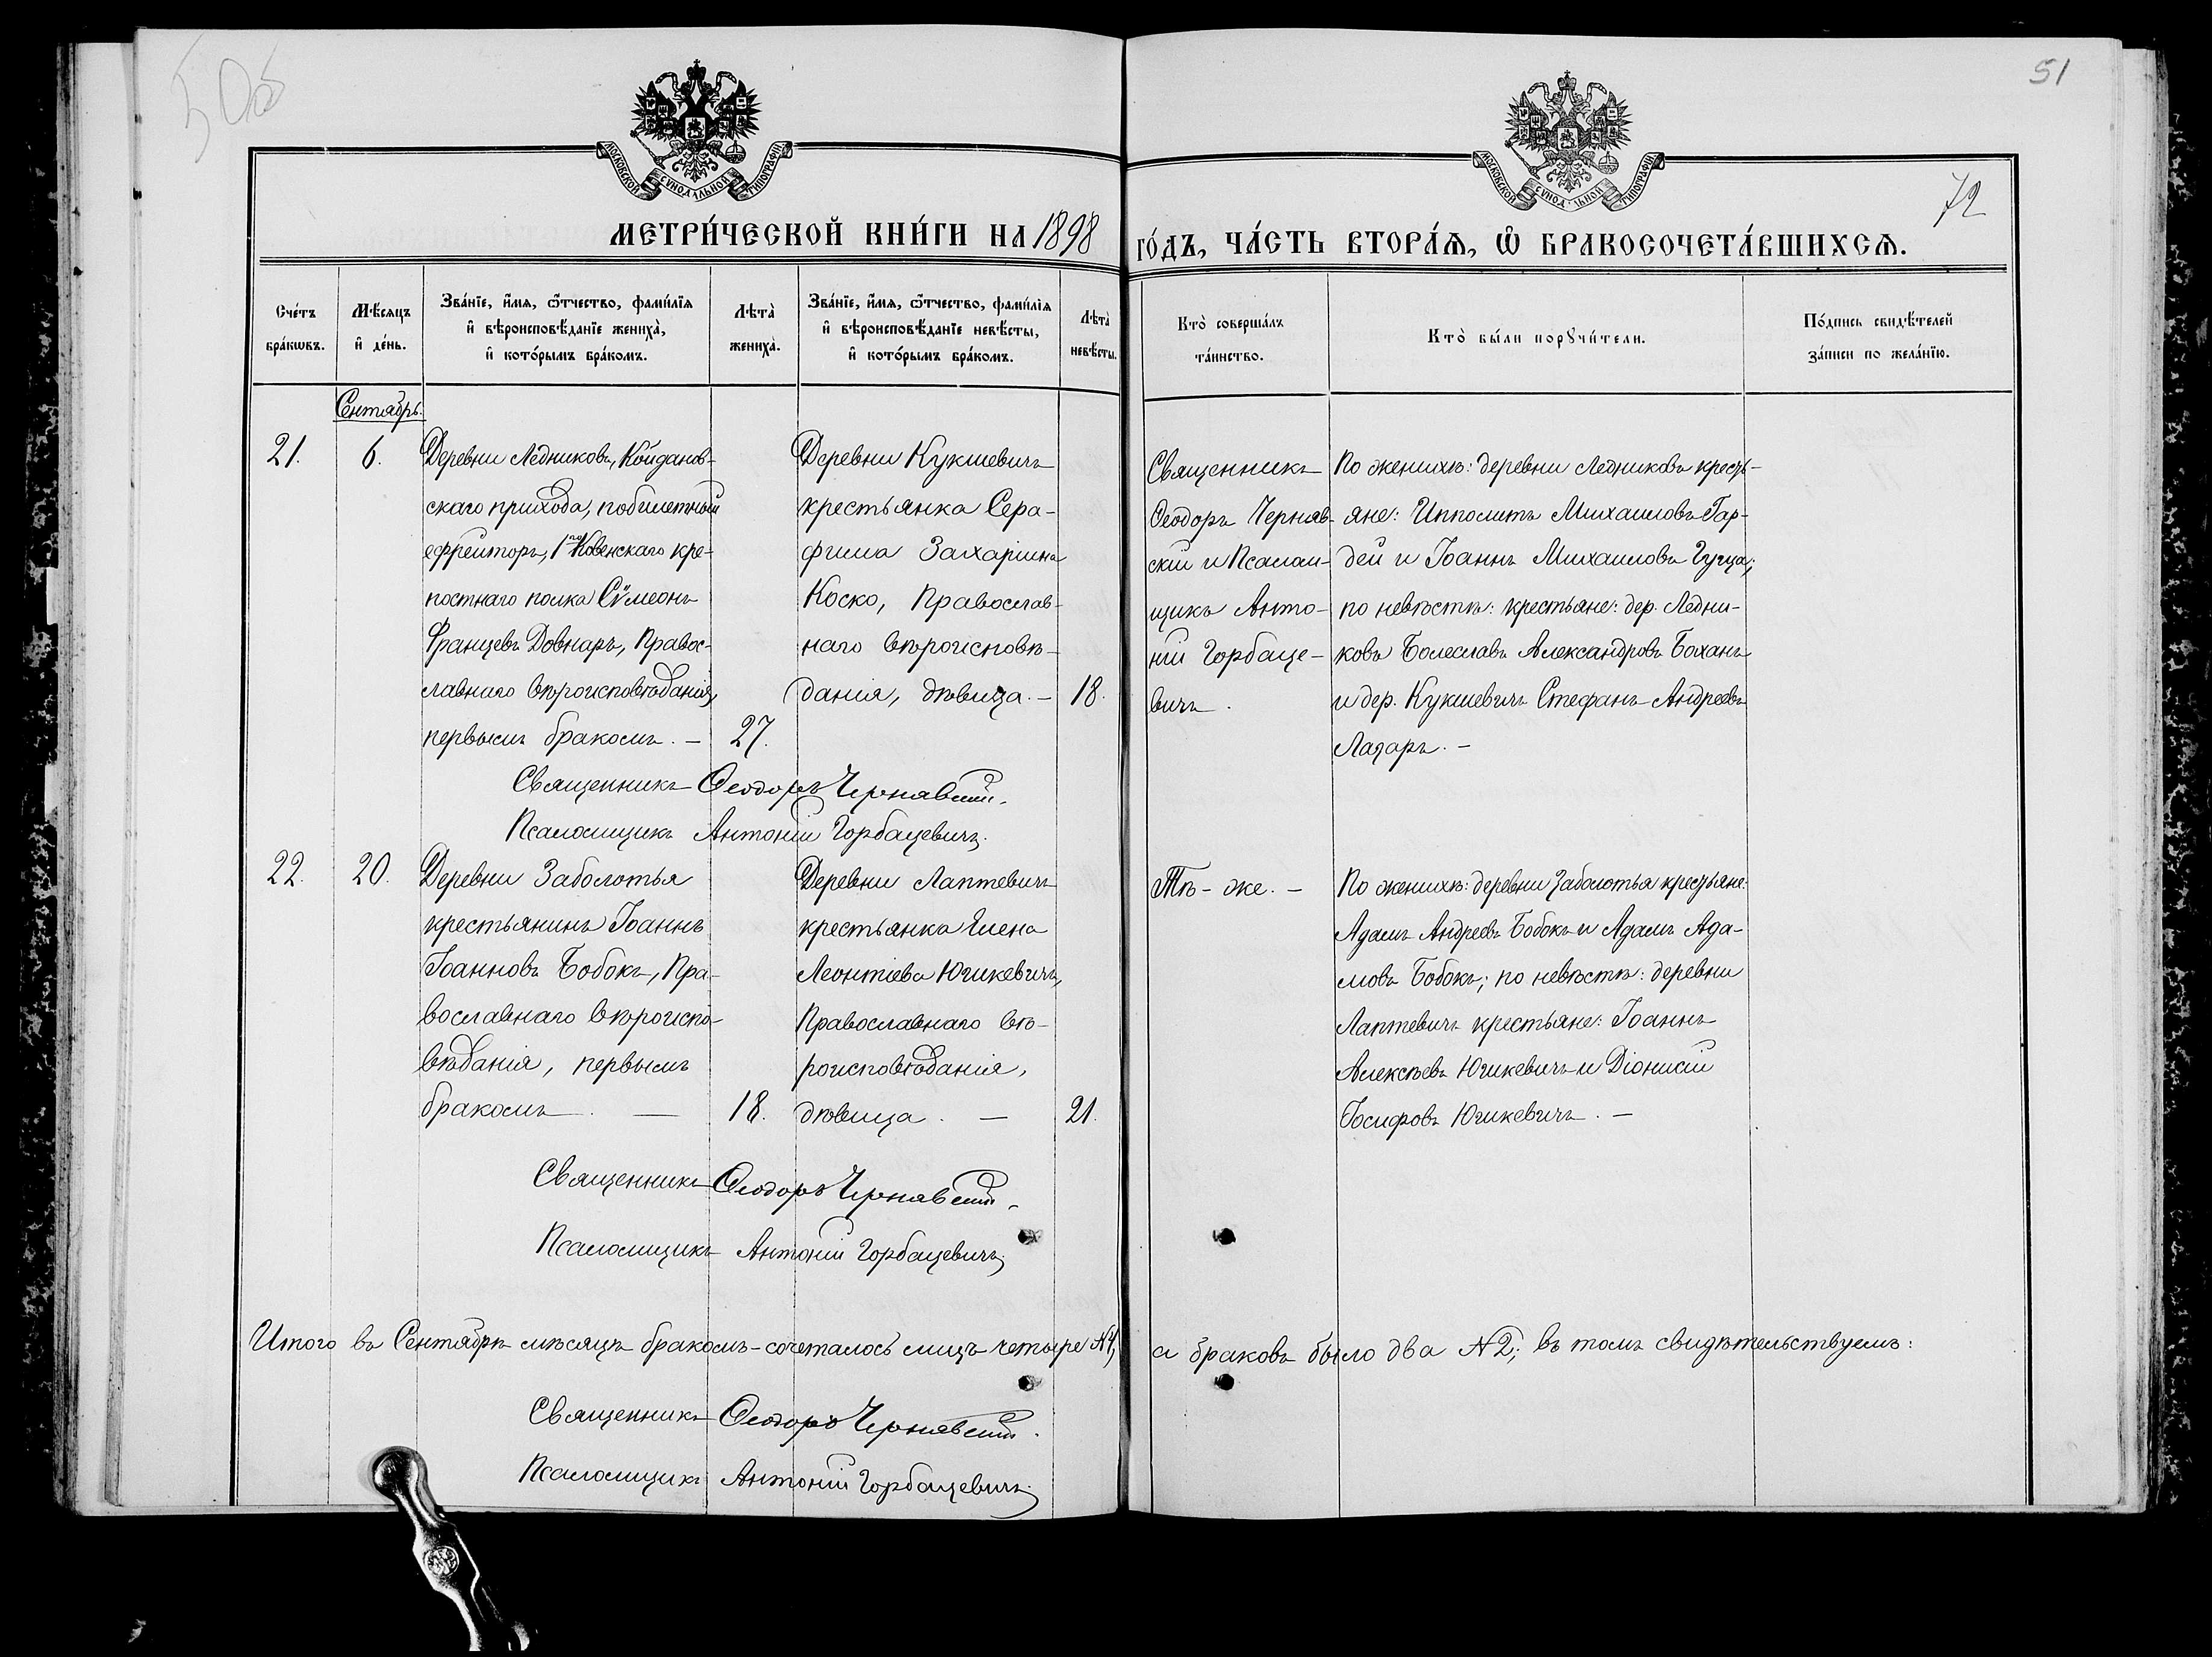 50об
51
72
МОСКОВСКОЙ СѴНОДАЛЬНОЙ ТИПОГРАФІИ
МОСКОВСКОЙ СѴНОДАЛЬНОЙ ТИПОГРАФІИ
МЕТРИ́ЧЕСКОЙ КНИ́ГИ НА 1898 ГО́ДЪ, ЧА́СТЬ ВТОРА́Ѧ, Ѽ БРАКОСОЧЕТА́ВШИХСѦ.
Сче́тъ
бра́кѡвъ.
Мѣ́сяцъ
и҆ де́нь.
Зва́нїе, и҆́мѧ, ѻ҆́тчество, фами́лїѧ
и҆ вѣроисповѣ́данїе жениха̀,
и҆ кото́рымъ бра́комъ.
Лѣта̀
жениха̀.
Зва́нїе, и҆́мѧ, ѻ҆́тчество, фами́лїѧ
и҆ вѣроисповѣ́данїе невѣ́сты,
и҆ кото́рымъ бра́комъ.
Лѣта̀
невѣ́сты.
Кто̀ соверша́лъ
та́инство.
Кто̀ бы́ли порꙋчи́тели.
По́дпись свидѣ́телей
за́писи по жела́нїю.
Сентябрь.
21.
6.
Деревни Ледниковъ, Койданов-
скаго прихода, побилетный
ефрейторъ, 1го Ковенскаго кре-
постнаго полка Сѵмеонъ
Францевъ Довнаръ, Правос-
лавнаго вѣроисповѣданія,
первымъ бракомъ. —
27.
Деревни Кукшевичъ
крестьянка Сера-
фима Захаріина
Коско, Православ-
наго вѣроисповѣ-
данія, дѣвица. —
18.
Священникъ
Ѳеодоръ Черняв-
скій и Псалом-
щикъ Анто-
ній Горбаце-
вичъ.
По женихѣ: деревни Ледниковъ кресть-
яне: Ипполитъ Михаиловъ Гар-
дей и Іоаннъ Михаиловъ Гуща;
по невѣстѣ: крестьяне: дер. Ледни-
ковъ Болеславъ Александровъ Боханъ
и дер. Кукшевичъ Стефанъ Андреевъ
Лазаръ. —
Священникъ Ѳеодоръ Чернявскій.
Псаломщикъ Антоній Горбацевичъ.
22.
20.
Деревни Заболотья
крестьянинъ Іоаннъ
Іоанновъ Бобокъ, Пра-
вославнаго вѣроиспо-
вѣданія, первымъ
бракомъ. —
18.
Деревни Лаптевичъ
крестьянка Елена
Леонтіева Югикевичъ,
Православнаго вѣ-
роисповѣданія,
дѣвица. —
21.
Тѣ-же. —
По женихѣ: деревни Заболотья крестьяне:
Адамъ Андреевъ Бобокъ и Адамъ Ада-
мовъ Бобокъ; по невѣстѣ: деревни
Лаптевичъ крестьяне: Іоаннъ
Алексѣевъ Югикевичъ и Діонисій
Іосифовъ Югикевичъ. —
Священникъ Ѳеодоръ Чернявскій.
Псаломщикъ Антоній Горбацевичъ.
Итого въ Сентябрѣ мѣсяцѣ бракомъ-сочеталось лицъ четыре №4, а браковъ было два №2; въ томъ свидѣтельствуемъ:
Священникъ Ѳеодоръ Чернявскій.
Псаломщикъ Антоній Горбацевичъ.